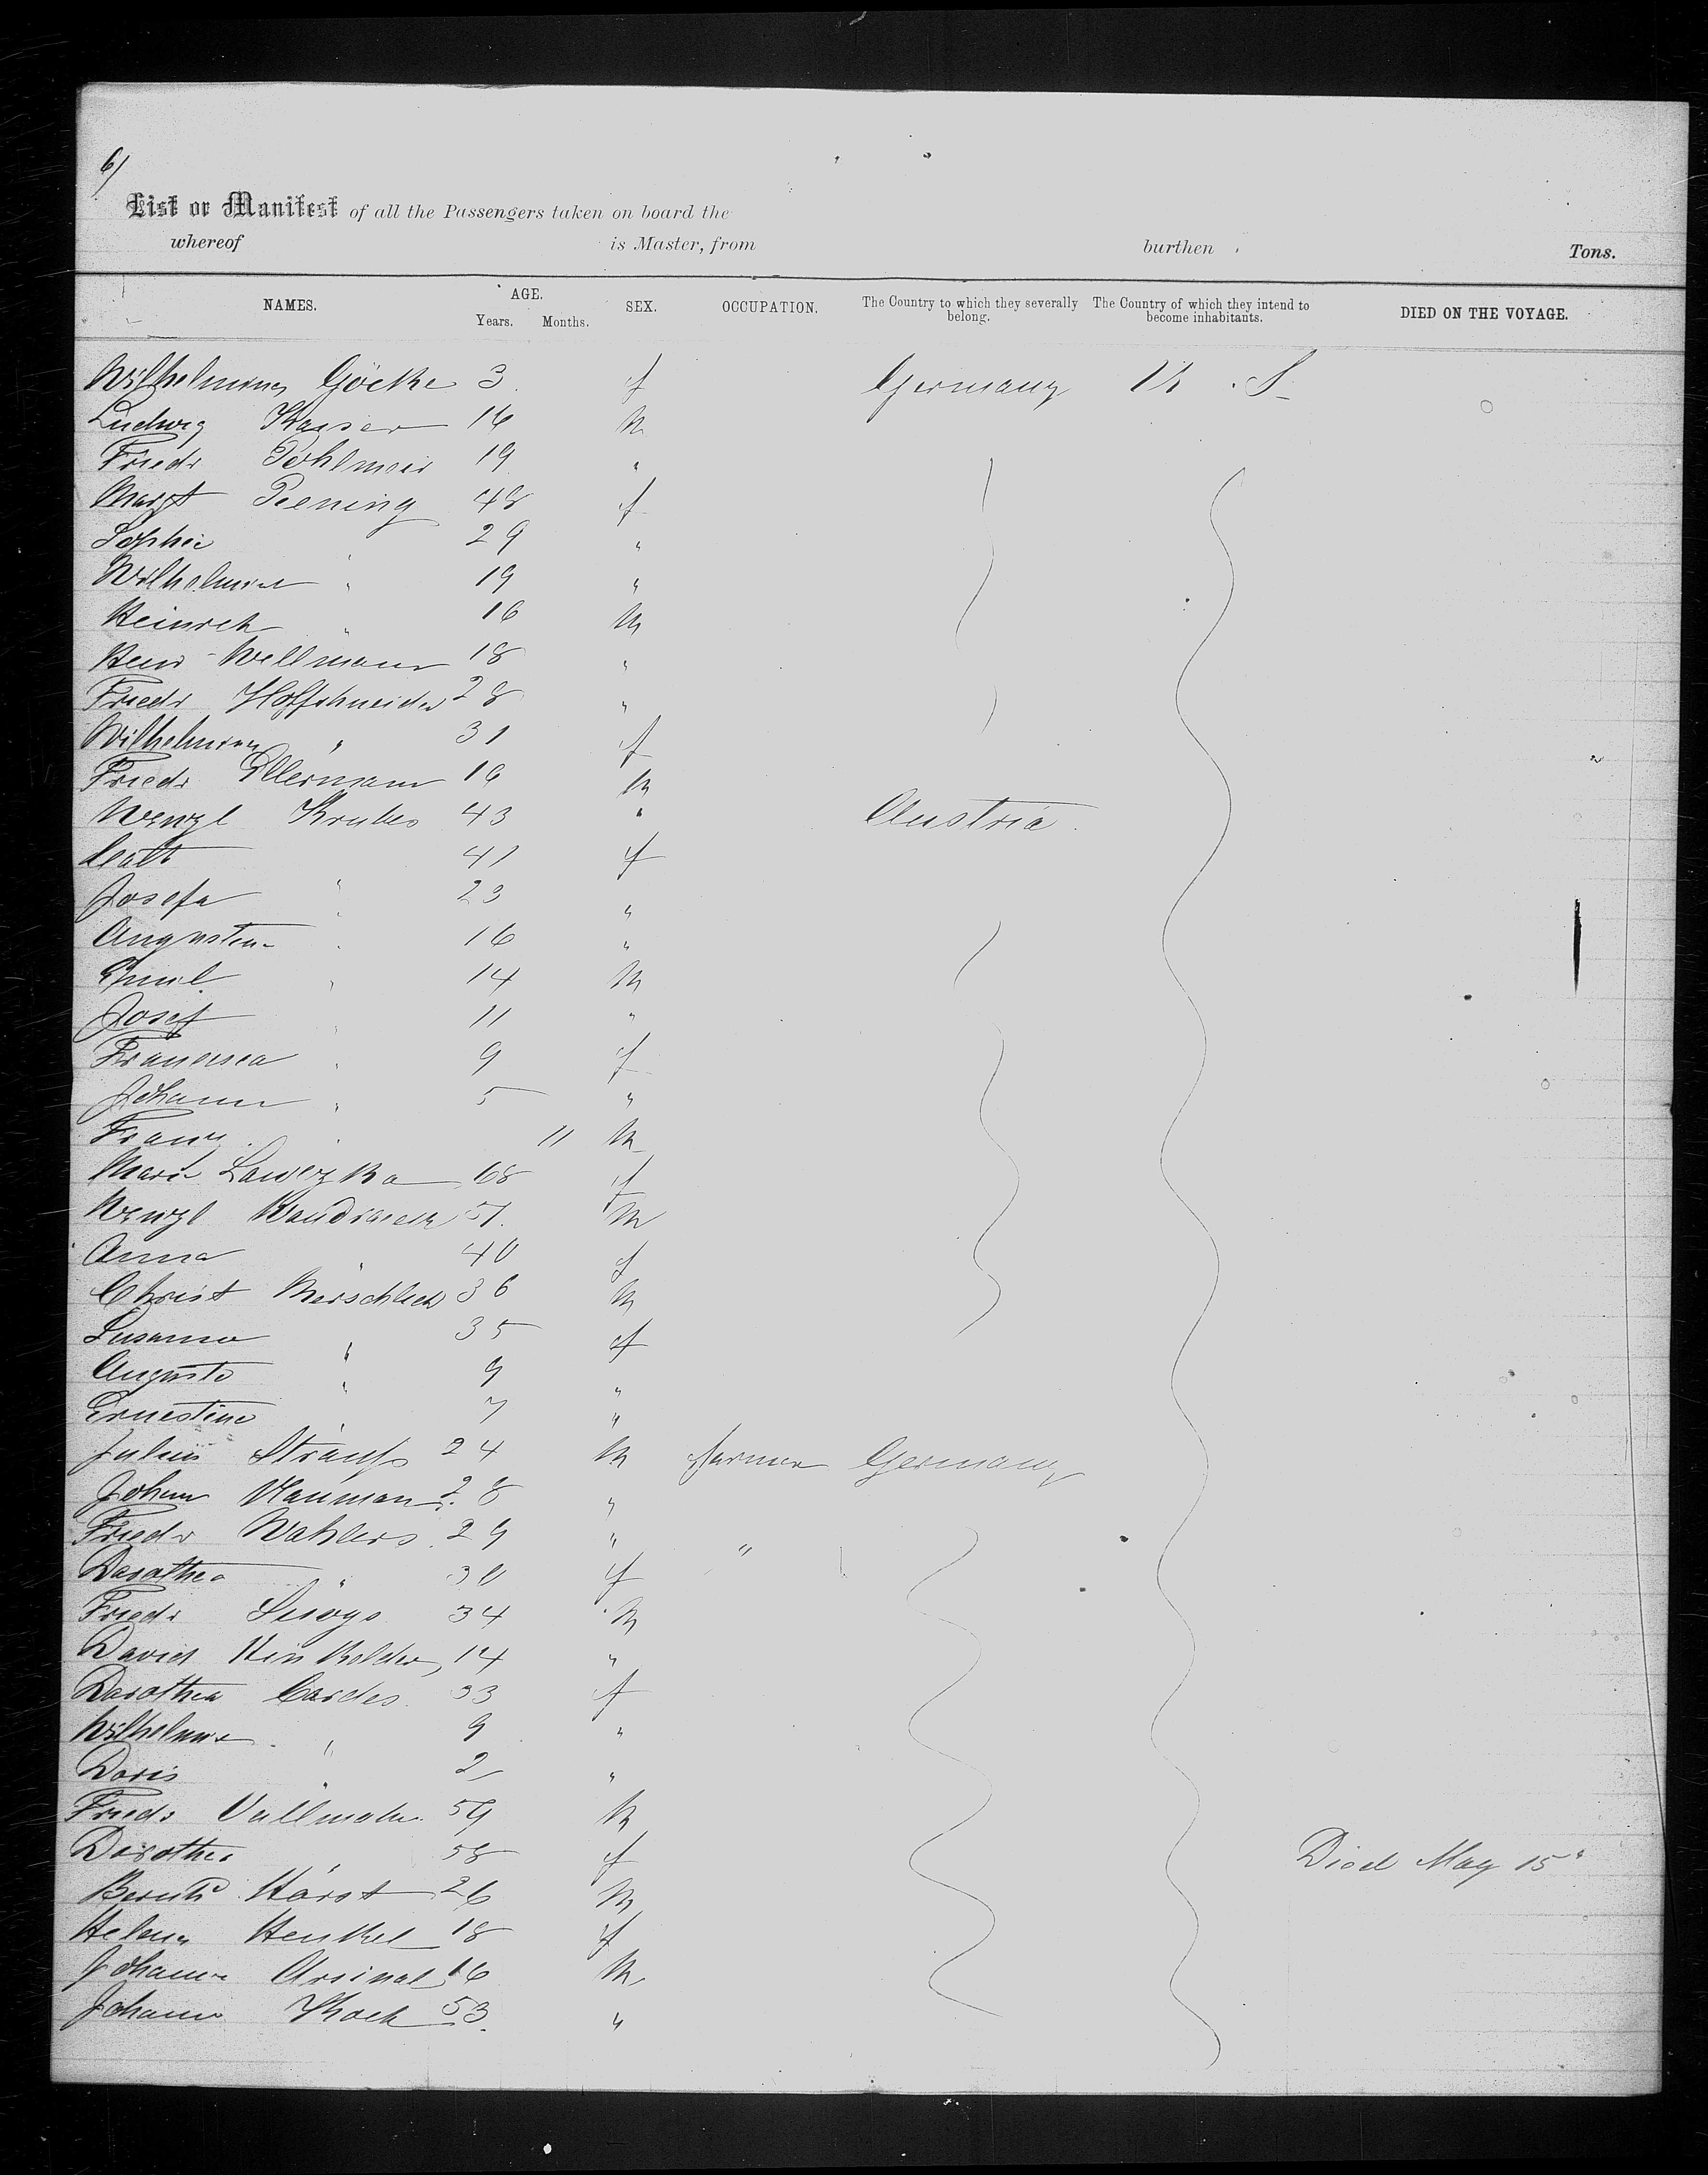 6/
List or Manifest of all the Passengers taken on board the
whereof is Master, from burthen Tons.
NAMES. AGE. Years. Months. SEX. OCCUPATION. The Country to which they severally belong. The Country of which they intend to become inhabitants. DIED ON THE VOYAGE.
Wilhelmine Göcke 3 f Germany U. S.
Ludwig Kaiser 16 M
Friedr Pohlmeier 19 "
Margt Peening 48 f
Sophie 29 "
Wilhelmine " 19 "
Heinrich " 16 M
Heinr Wellmann 18 "
Friedr 28 "
Wilhelmine " 31 f
Friedr Ellermann 16 M
Wenzl 43 " Austria.
Cath 41 f
Josefa " 23 "
Augustine " 16 "
Emil " 14 M
Josef " 11 "
Francisca " 9 f
Johann " 5 "
Franz " 11 M
Marie 68 f
Wenzl 51 M
Anna " 40 f
Christ 36 M
Susanna " 35 f
Auguste " 9 "
Ernestine " 7 "
Julius Strauss 24 M farmer Germany
Johann 28 "
Friedr Wahlers 29 " "
Dorothea " 30 f
Friedr 34 M
David 14 "
Dorothea Cordes 33 f
Wilhelmine " 9 "
Doris " 2 "
Friedr 59 M
Dorothea " 58 f Died May 15"
Bernhd Horst 26 M
Helena Henkel 18 f
Johann 16 M
Johann Koch 53 "